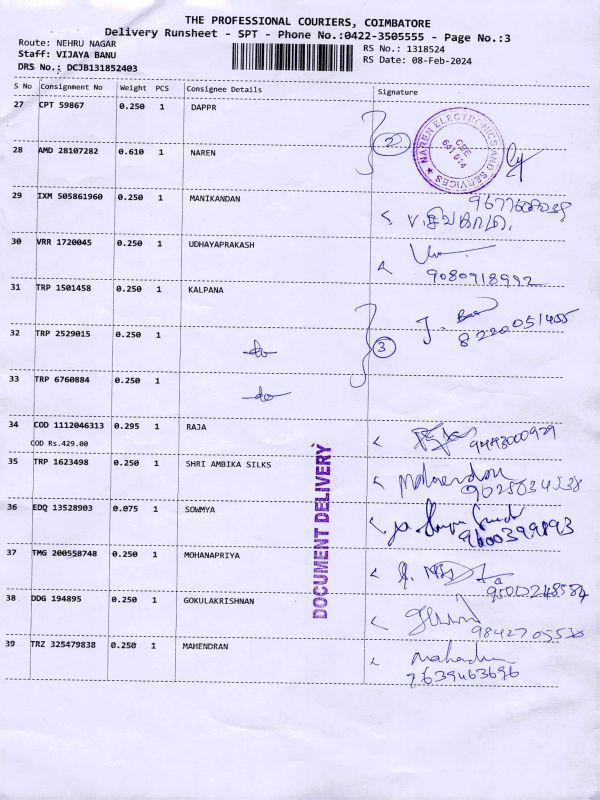 THE PROFESSIONAL COURIERS, COIMBATORE
Delivery Runsheet - SPT - Phone No.:0422-3505555 - Page No.:3
Route: NEHRU NAGAR
Staff: VIJAYA BANU
DRS No.: DCJB131852403
RS No.: 1318524
RS Date: 08-Feb-2024
S No Consignment No Weight PCS Consignee Details Signature
27 CPT 59867 0.250 1 DAPPR
NAREN ELECTRONICS AND SERVICES
CBE
641 014
2
28 AMD 28107282 0.610 1 NAREN
29 IXM 505861960 0.250 1 MANIKANDAN
30 VRR 1720045 0.250 1 UDHAYAPRAKASH
9080918992
31 TRP 1501458 0.250 1 KALPANA
8220051455
32 TRP 2529015 0.250 1 do
3
33 TRP 6760884 0.250 1 do
34 COD 1112046313 0.295 1 RAJA
COD Rs.429.00
35 TRP 1623498 0.250 1 SHRI AMBIKA SILKS
36 EDQ 13528903 0.075 1 SOWMYA
37 TMG 200558748 0.250 1 MOHANAPRIYA
38 DDG 194895 0.250 1 GOKULAKRISHNAN
39 TRZ 325479838 0.250 1 MAHENDRAN
7639463696
DOCUMENT DELIVERY